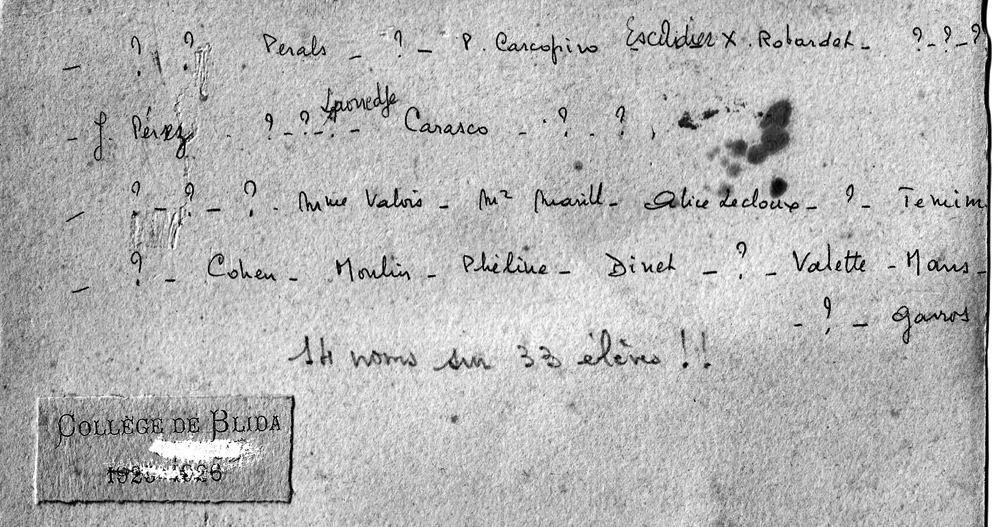 _ ? ? Perals _ ? _ P. Carcopino Escudier x . Robardet _ ?_?_?
_ J. Pérez . ?_?_? _ Carasco _ ? _ ? .
_ ? _ ? _ ? . Mme Valois _ Mr Marill _ Alice Lecloux _ ? _ Temim
_ ? _ Cohen _ Moulin _ Phéline _ Dinet _ ? _ Valette _ Mans _
_ ? _ Garros
14 noms sur 33 élèves !!
COLLÈGE DE BLIDA
1925-1926